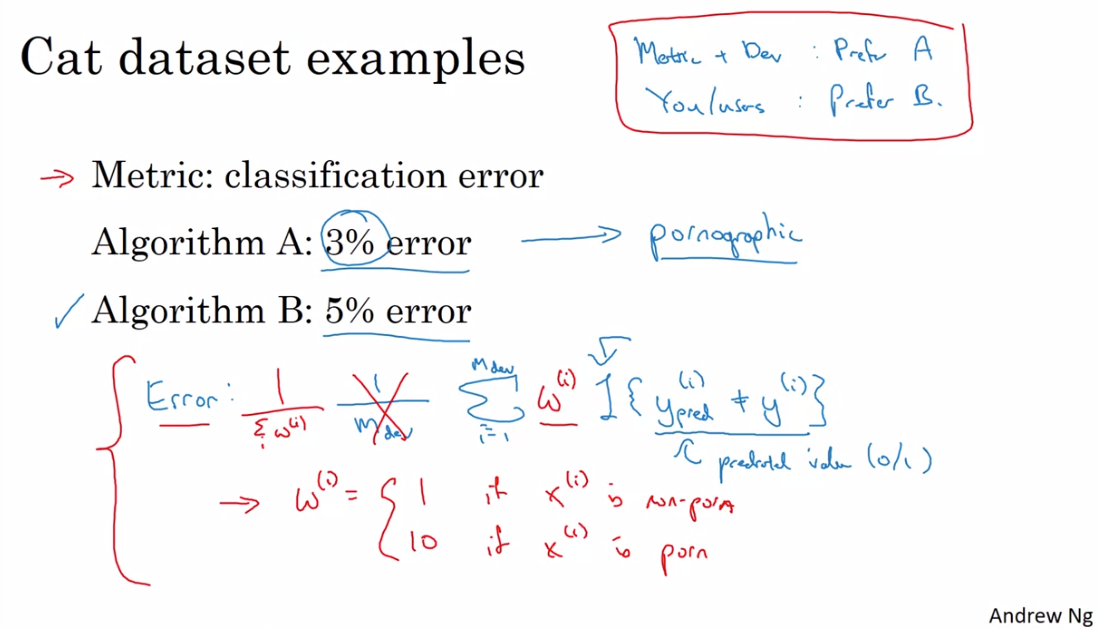 Cat dataset examples
Metric + Dev : Prefer A
You/users : Prefer B.
→ Metric: classification error
Algorithm A: 3% error → pornographic
✓ Algorithm B: 5% error
Error: 1/Σᵢ w⁽ⁱ⁾ 1/m_dev Σᵢ₌₁^m_dev w⁽ⁱ⁾ I{y_pred⁽ⁱ⁾ ≠ y⁽ⁱ⁾}
predicted value (0/1)
→ w⁽ⁱ⁾ = { 1 if x⁽ⁱ⁾ is non-porn
10 if x⁽ⁱ⁾ is porn
Andrew Ng